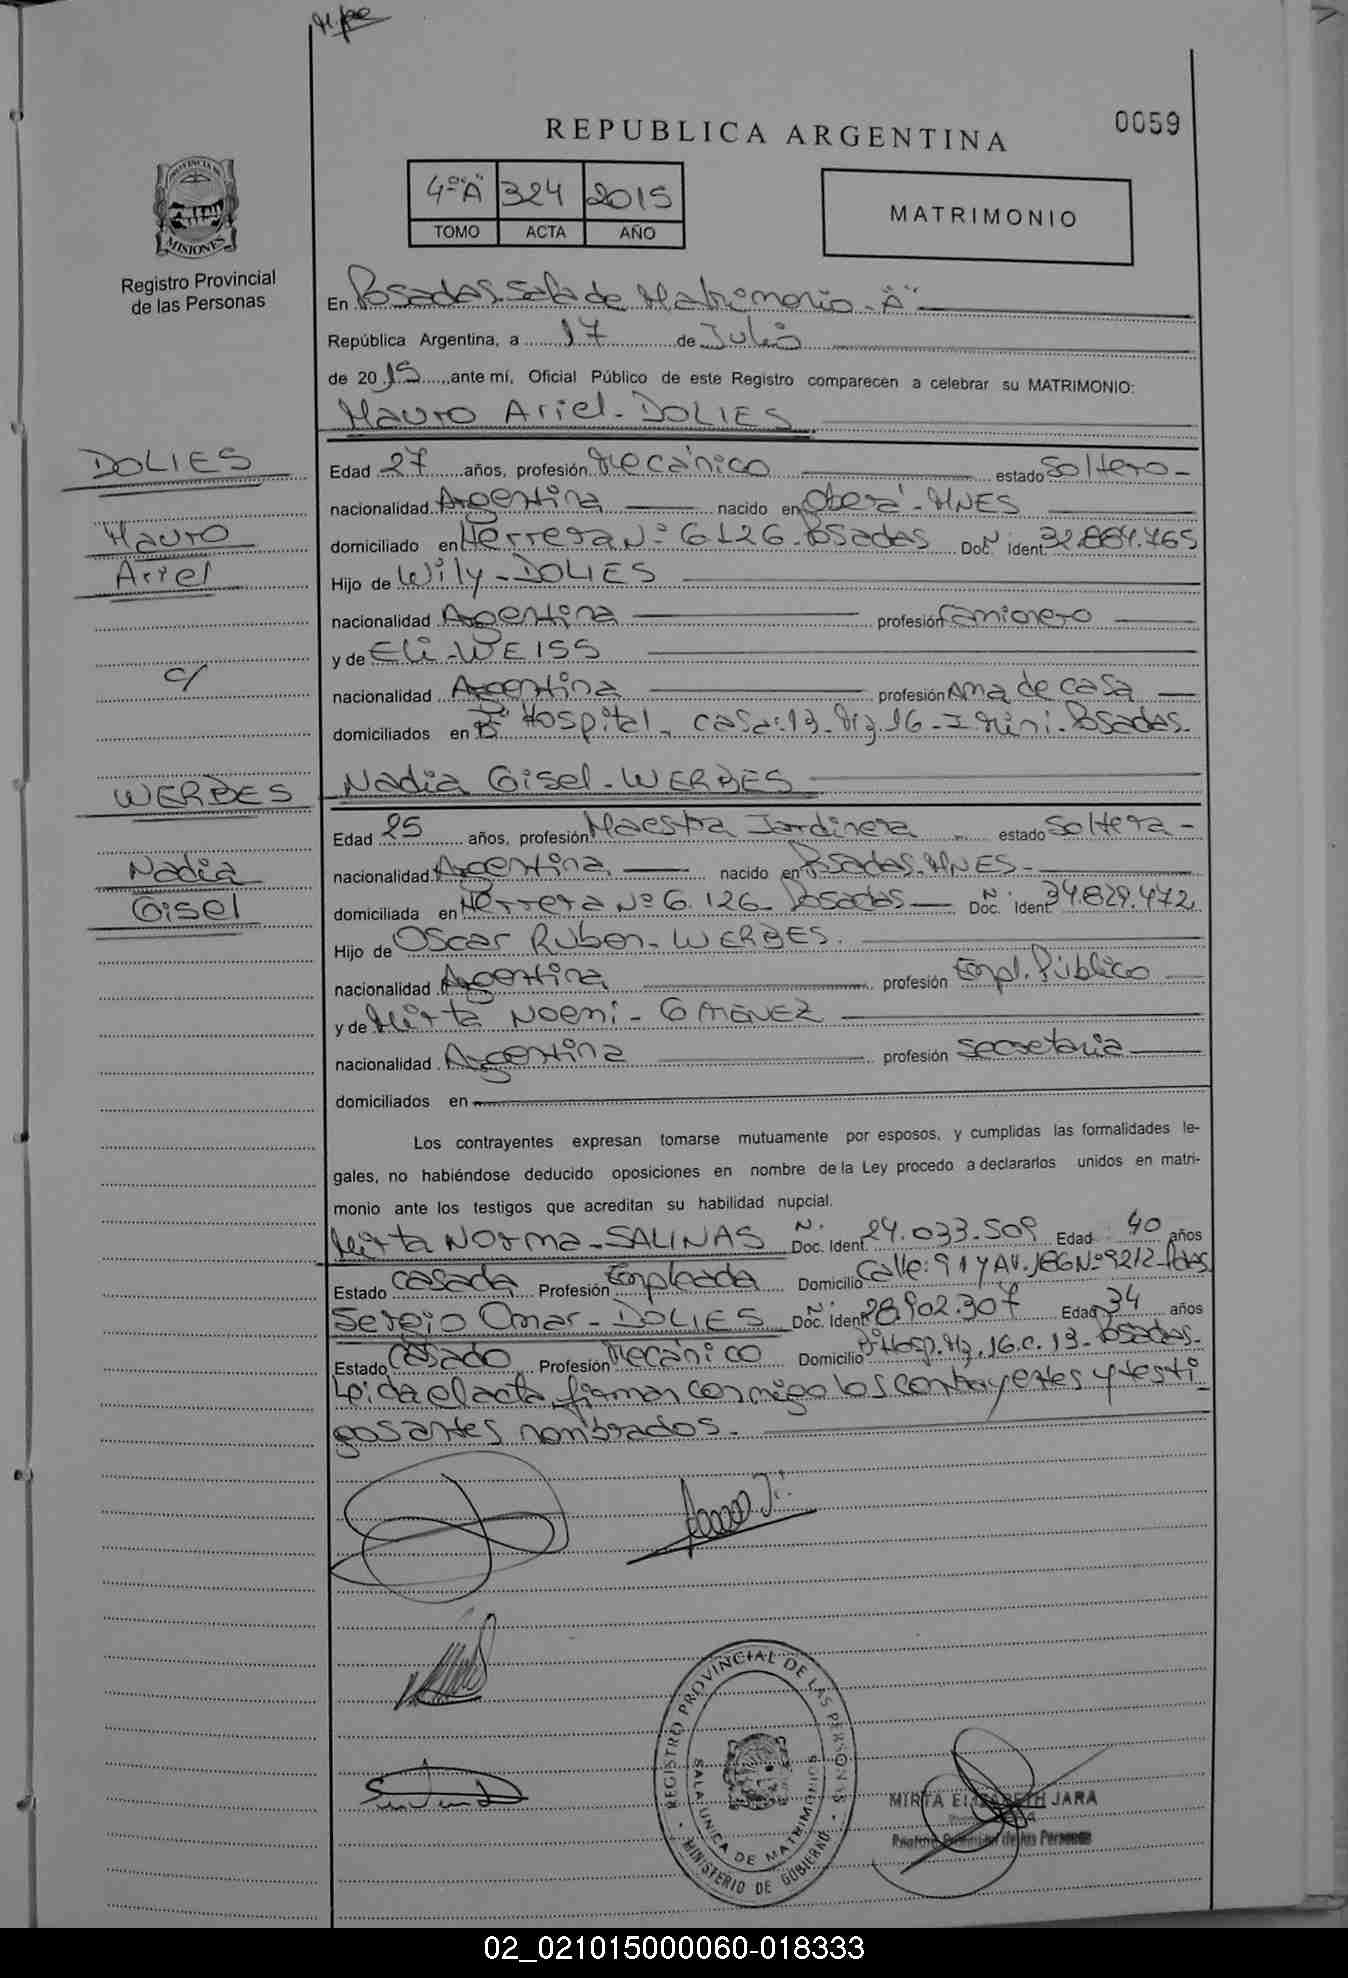 REPUBLICA ARGENTINA
0059
4º "A" 324 2015
TOMO ACTA AÑO
MATRIMONIO
PROVINCIA DE
MISIONES
Registro Provincial
de las Personas
En Posadas. Sala de Matrimonio - "A"
República Argentina, a 17 de Julio
de 2015, ante mí, Oficial Público de este Registro comparecen a celebrar su MATRIMONIO:
Mauro Ariel - DOLIES
DOLIES
Mauro
Ariel
c/
WERBES
Nadia
Gisel
Edad 27 años, profesión Mecánico estado Soltero -
nacionalidad Argentina nacido en Oberá - MNES
domiciliado en Herrera Nº 6126 - Posadas Doc. Ident. Nº 32.881.765
Hijo de Wily - DOLIES
nacionalidad Argentina profesión Camionero
y de Eli - WEISS
nacionalidad Argentina profesión Ama de casa
domiciliados en Bº Hospital, casa: 13 - Mz. 16 - Posadas -
Nadia Gisel - WERBES
Edad 25 años, profesión Maestra Jardinera estado Soltera -
nacionalidad Argentina nacido en Posadas - MNES -
domiciliada en Herrera Nº 6.126 - Posadas Doc. Ident. Nº 34.829.472
Hijo de Oscar Ruben - WERBES.
nacionalidad Argentina profesión Empl. Público
y de Mirta Noemi - GIMENEZ
nacionalidad Argentina profesión Secretaria
domiciliados en
Los contrayentes expresan tomarse mutuamente por esposos, y cumplidas las formalidades le-
gales, no habiéndose deducido oposiciones en nombre de la Ley procedo a declararlos unidos en matri-
monio ante los testigos que acreditan su habilidad nupcial.
Mirta Norma - SALINAS Doc. Ident. Nº 24.033.509 Edad 40 años
Estado Casada Profesión Empleada Domicilio Calle: 91 y AV. Nº 9212 - Pdas.
Sergio Omar - DOLIES Doc. Ident. Nº 28.902.307 Edad 34 años
Estado Casado Profesión Mecánico Domicilio Bº Hosp. Mz. 16. c. 13 - Posadas -
Leida el acta firman conmigo los contrayentes y testi-
gos antes nombrados. -
REGISTRO PROVINCIAL DE LAS PERSONAS
SALA UNICA DE MATRIMONIOS
MINISTERIO DE GOBIERNO
MIRTA ELIZABETH JARA
de las Personas
02_021015000060-018333